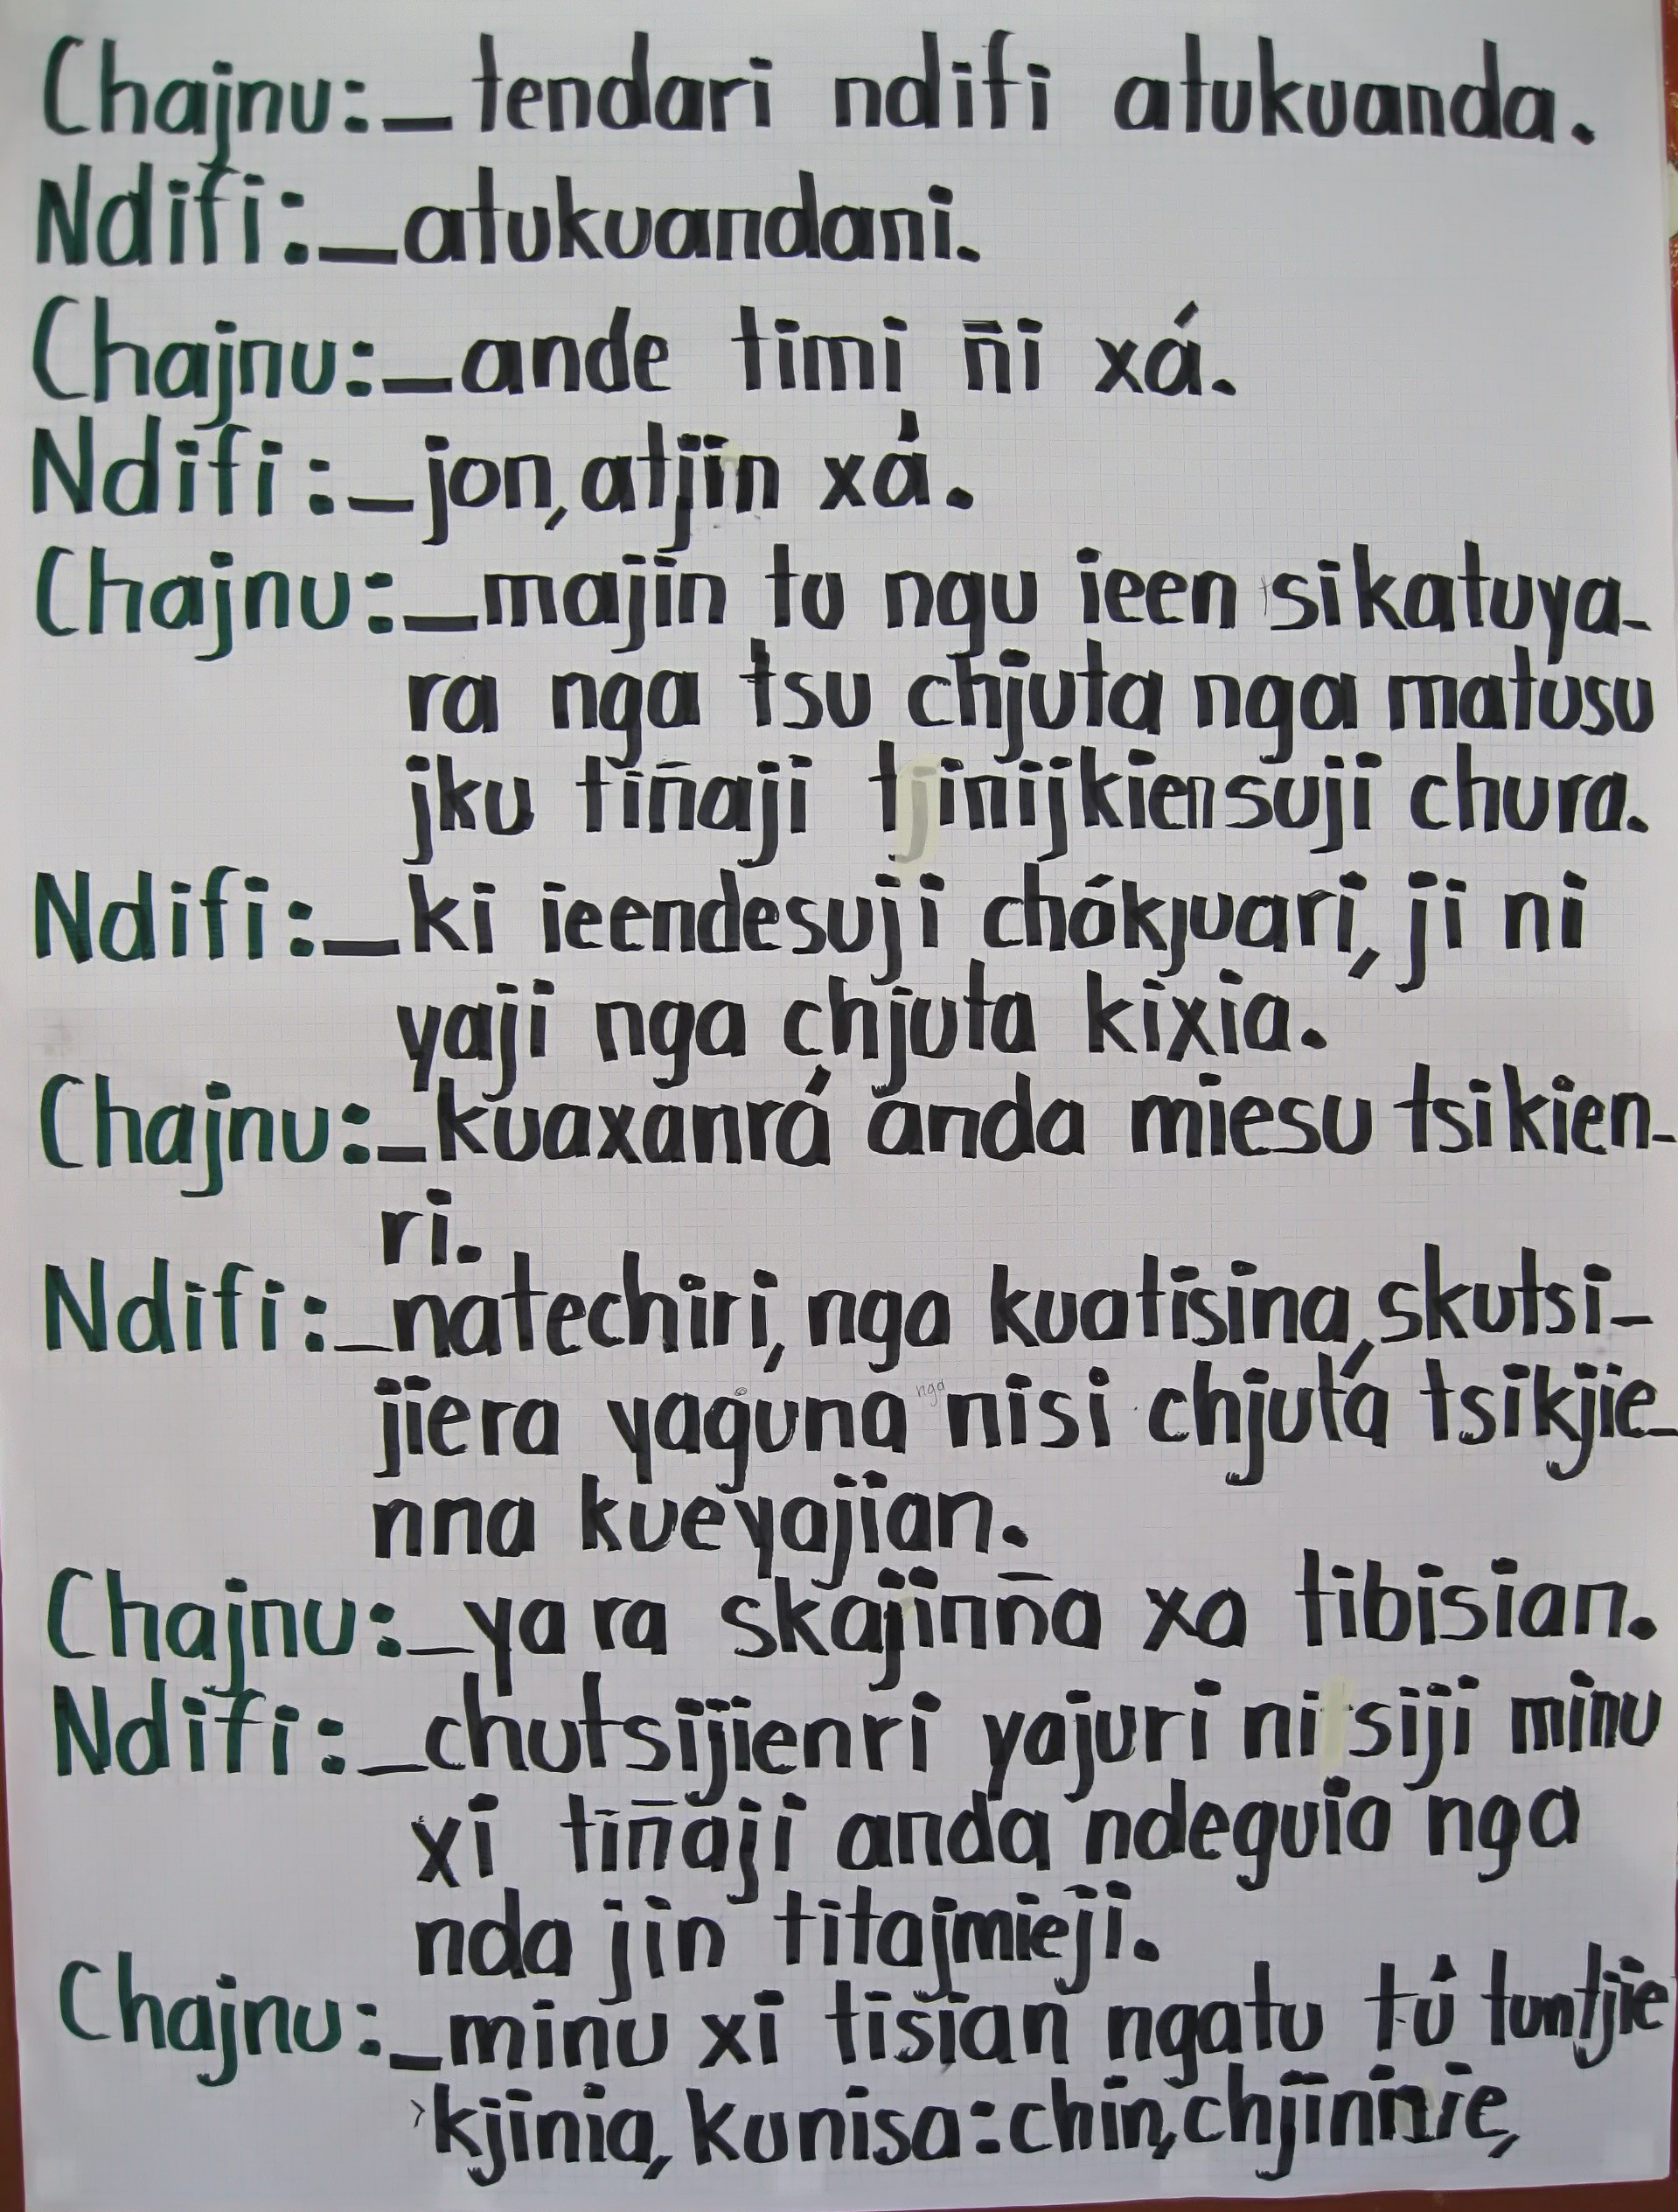 Chajnu:_tendari ndifi atukuanda.
Ndifi:_atukuandani.
Chajnu:_ande timi ñi xá.
Ndifi:_jon, atjin xá.
Chajnu:_majin tu ngu ieen sikatuya-
ra nga tsu chjuta nga matusu
jku tiñaji tjinijkiensuji chura.
Ndifi:_ki ieendesuji chókjuari, ji ni
yaji nga chjuta kixia.
Chajnu:_kuaxanrá anda miesu tsikien-
ri.
Ndifi:_natechiri, nga kuatisina, skutsi-
jiera yaguna nga nisi chjutá tsikjie-
nna kueyajian.
Chajnu:_ya ra skajinña xa tibisian.
Ndifi:_chutsijienri yajuri ni siji minu
xi tiñaji anda ndeguia nga
nda jin titajmieji.
Chajnu:_minu xi tisian ngatu tú tuntjie
kjinia, kunisa: chin, chjininie,